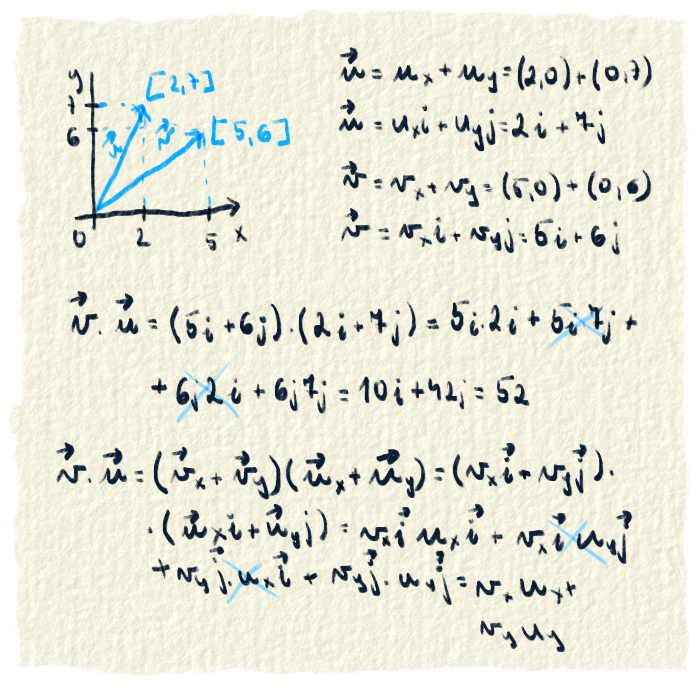 y
7
6
0 2 5 x
[2,7]
[5,6]
u⃗ v⃗
u⃗ = u_x + u_y = (2,0) + (0,7)
u⃗ = u_x i + u_y j = 2i + 7j
v⃗ = v_x + v_y = (5,0) + (0,6)
v⃗ = v_x i + v_y j = 5i + 6j
v⃗ . u⃗ = (5i + 6j) . (2i + 7j) = 5i.2i + 5i 7j +
+ 6j 2i + 6j 7j = 10i + 42j = 52
v⃗ . u⃗ = (v⃗_x + v⃗_y)(u⃗_x + u⃗_y) = (v_x i⃗ + v_y j⃗) .
. (u⃗_x i + u⃗_y j) = v_x i⃗ u_x i⃗ + v_x i⃗ u_y j⃗
+ v_y j⃗ . u_x i⃗ + v_y j⃗ . u_y j⃗ = v_x u_x +
v_y u_y